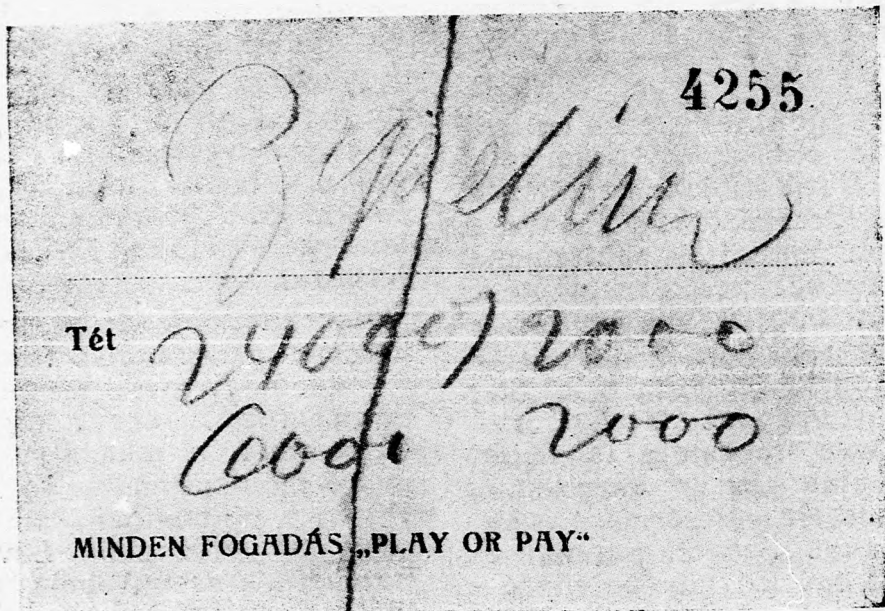 4255
Zippelin
Tét 24000) 2000
6000 2000
MINDEN FOGADÁS „PLAY OR PAY“